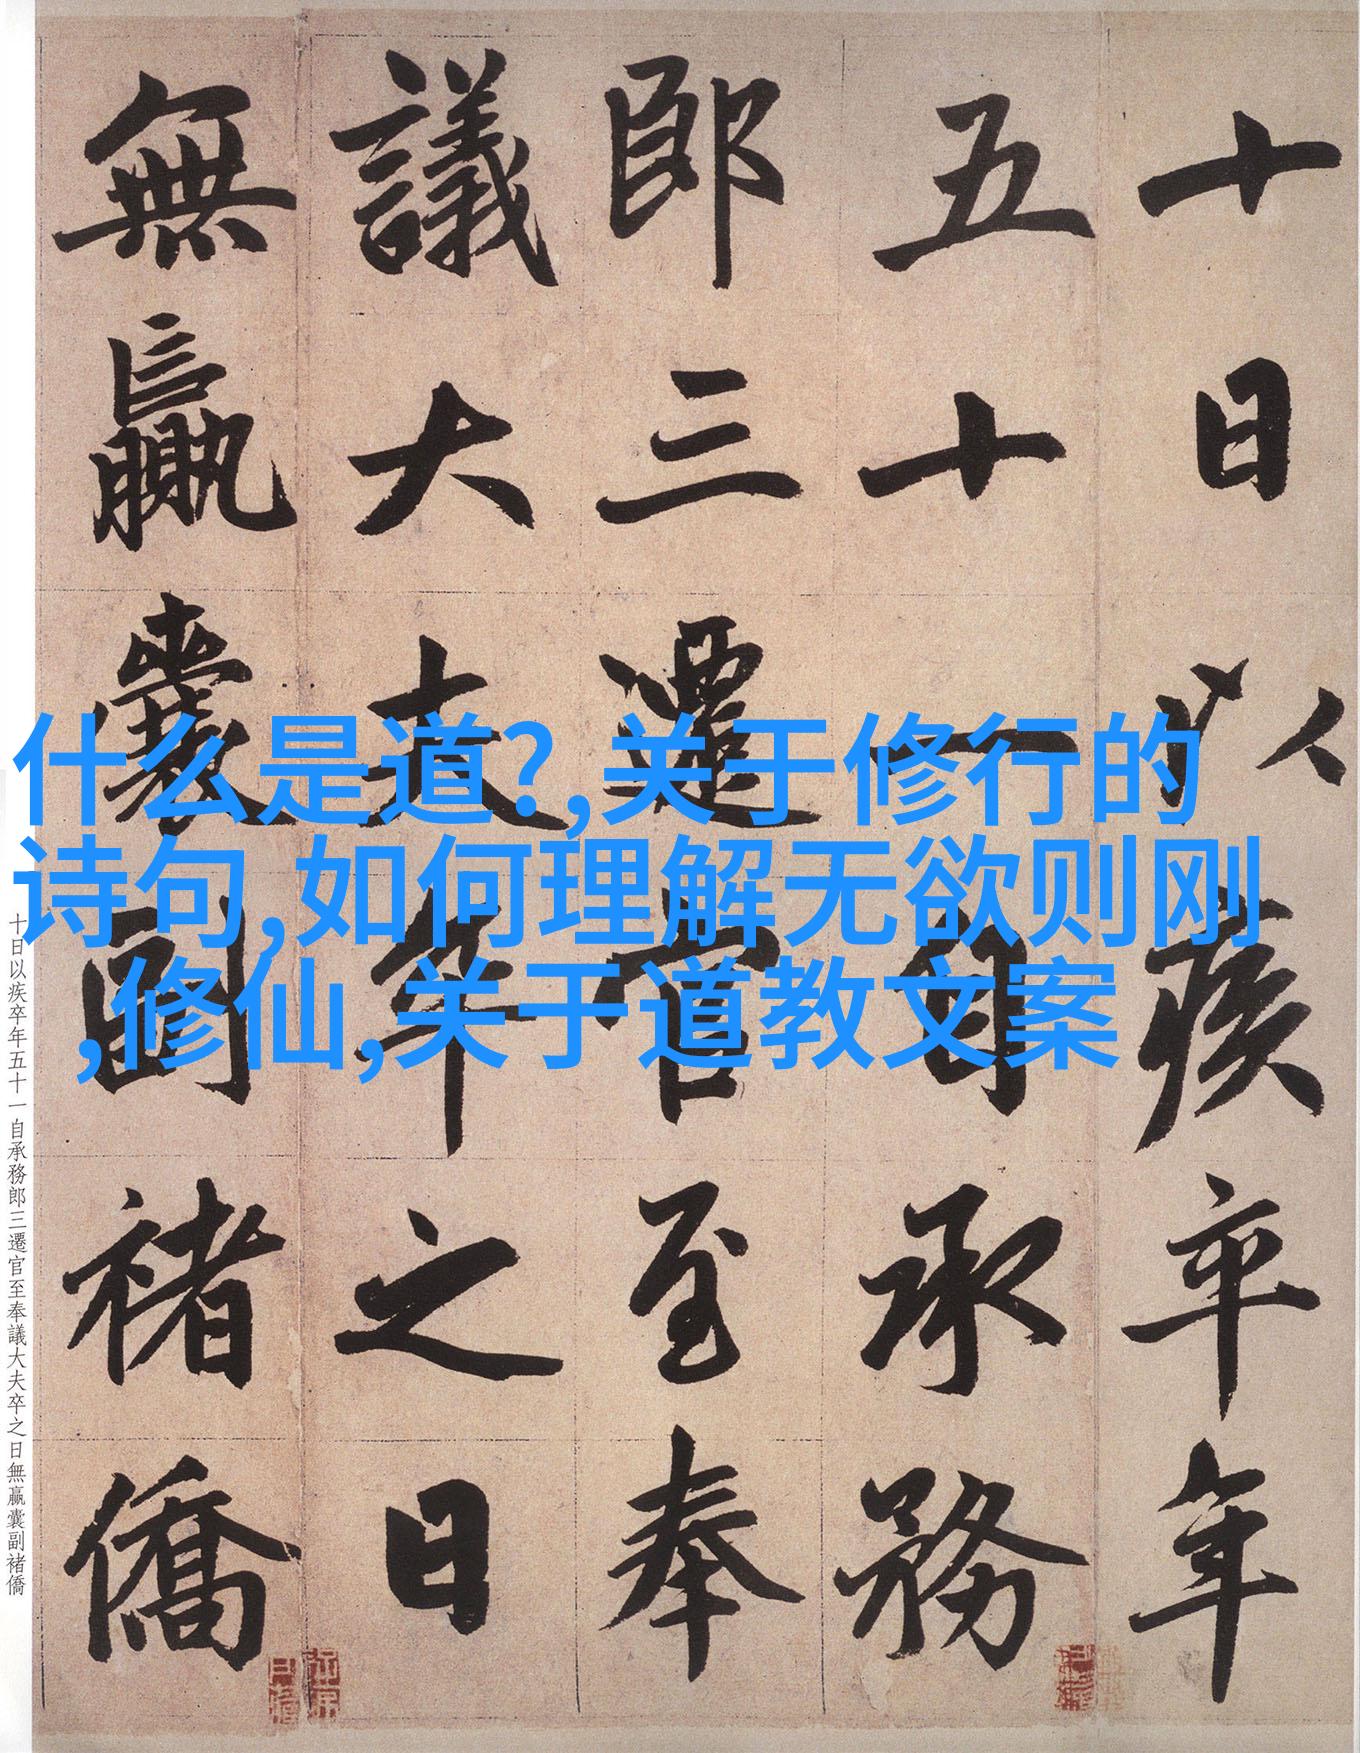 十日以疾卒年
五十一自承務
郎三遷官至奉
議大夫卒之日
無贏囊副褚僑
什么是道?,关于修行的
诗句,如何理解无欲则刚
,修仙,关于道教文案
十日以疾卒年五十一自承務郎三遷官至奉議大夫卒之日無贏囊副褚僑